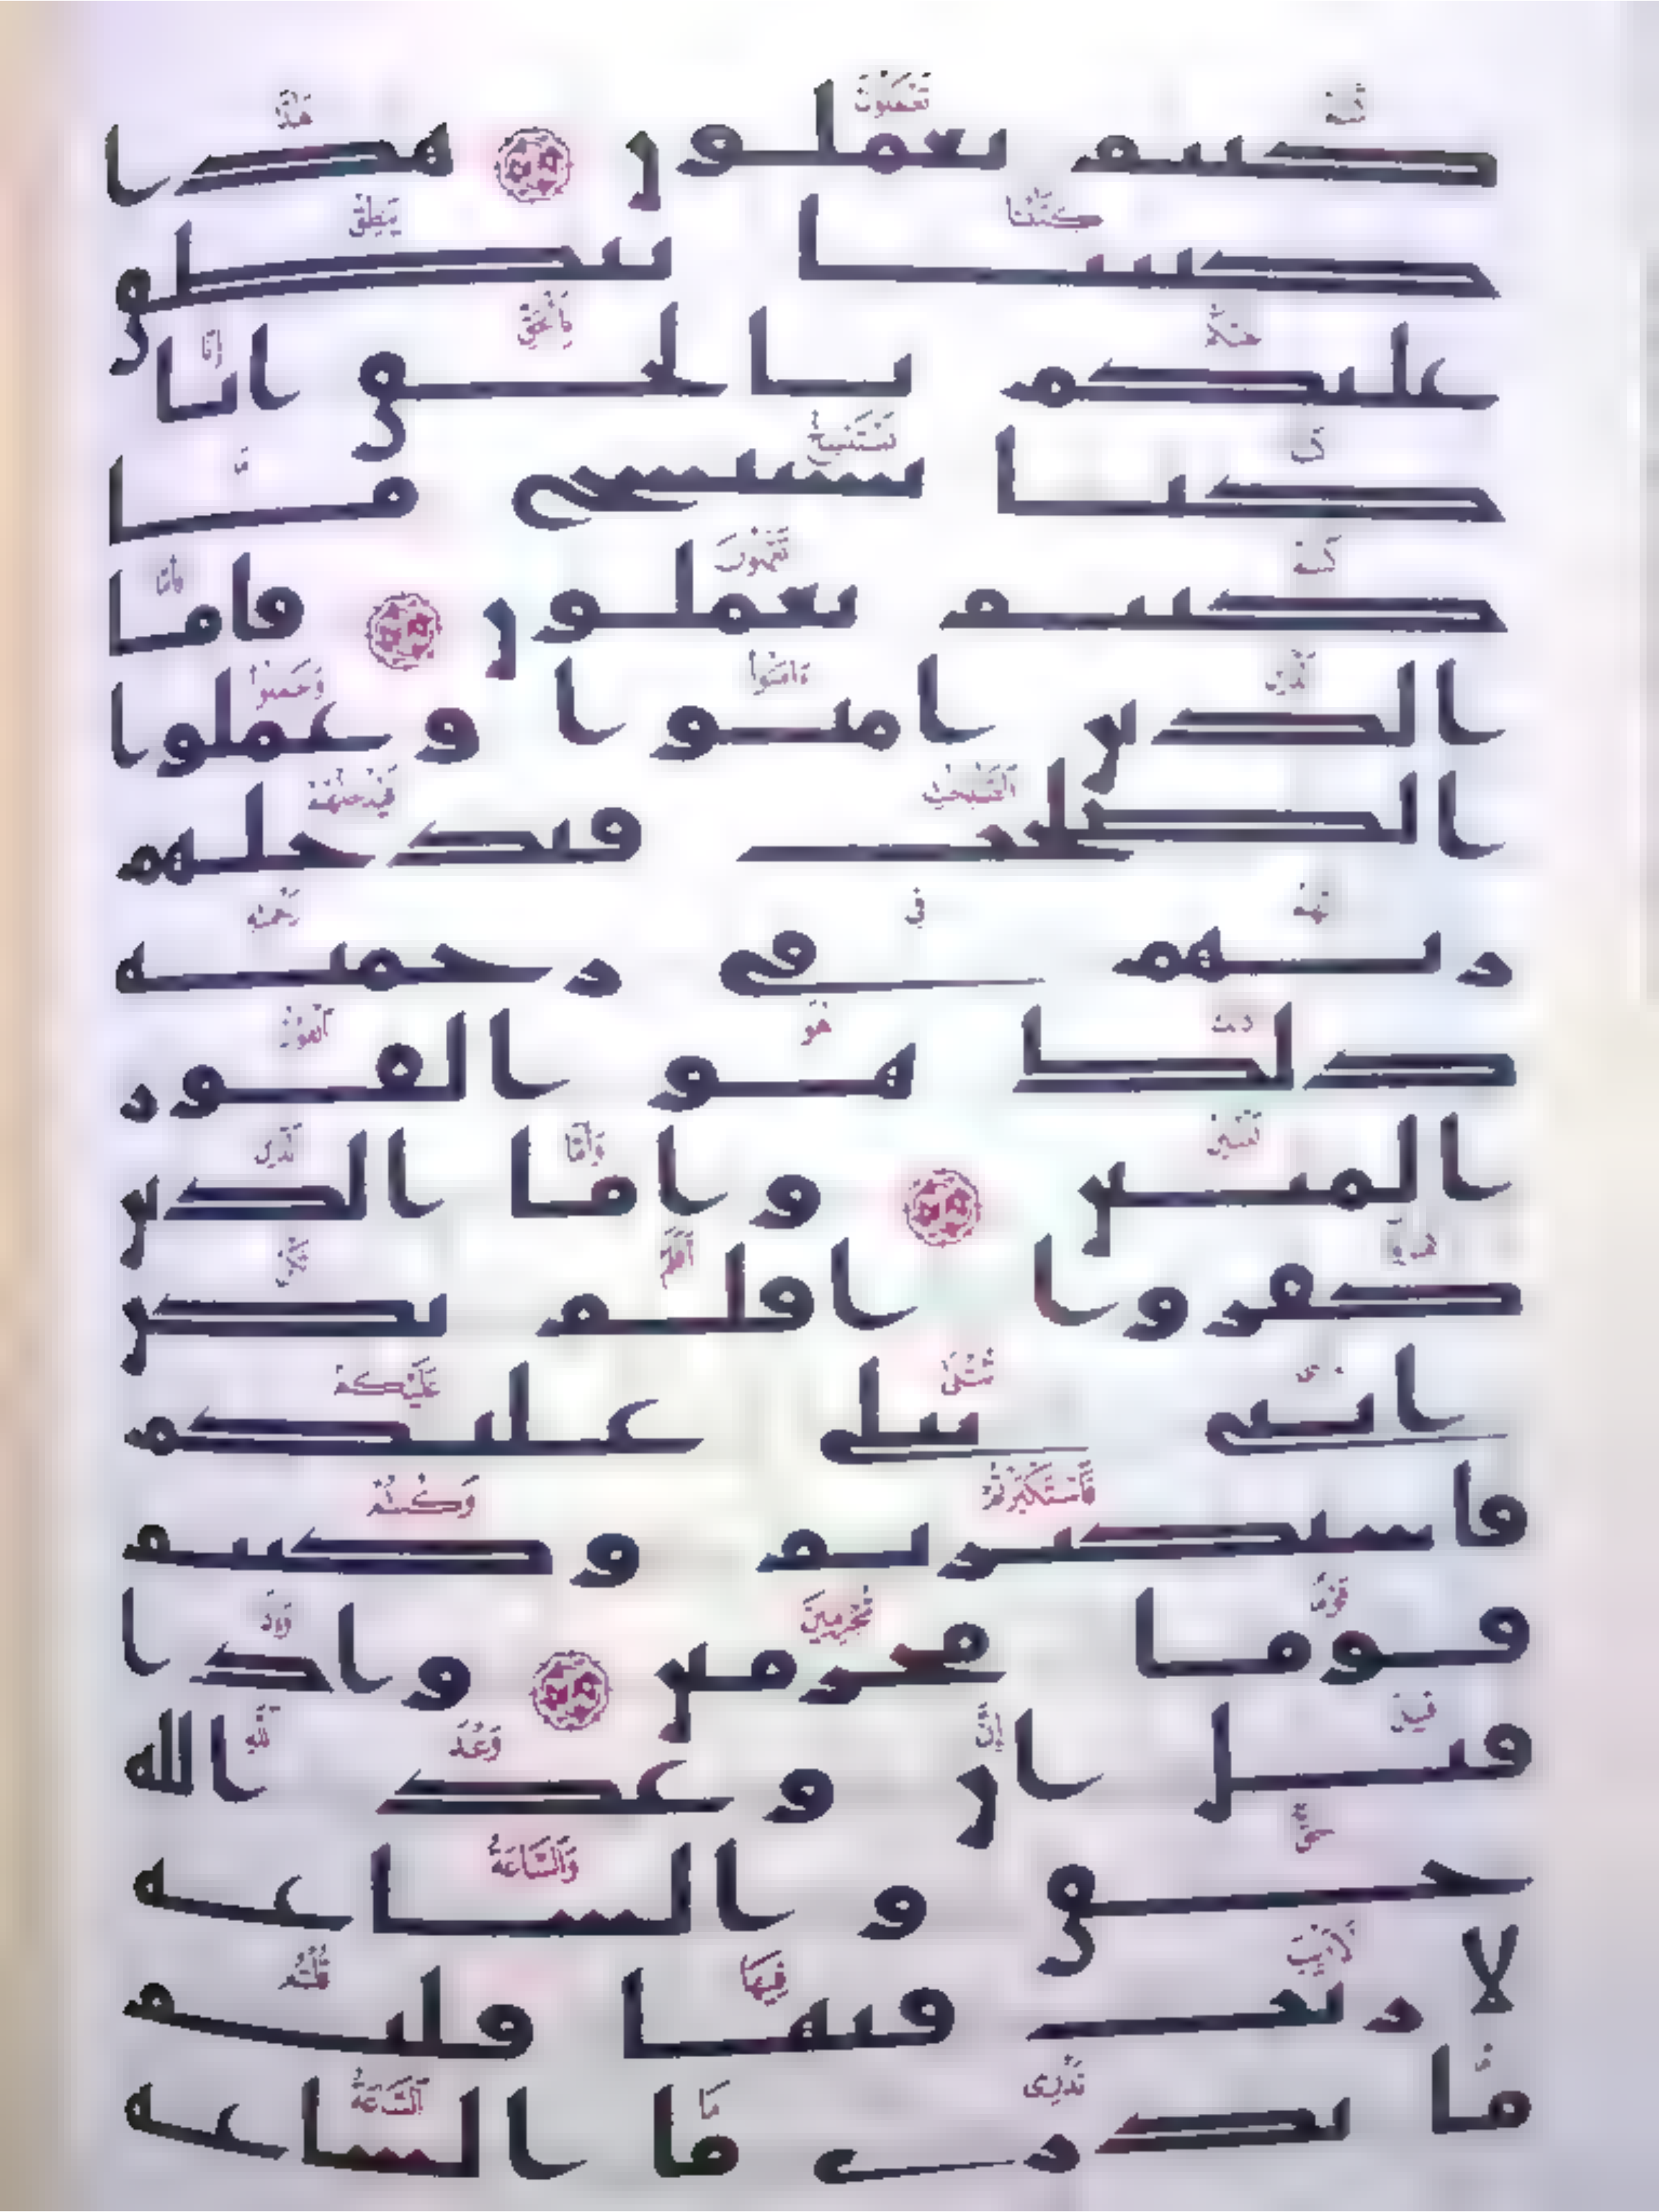 كنتم تعملون هذا
كتبنا ينطق
عليكم بالحق انا
كنا نستنسخ ما
كنتم تعملون فاما
الذين امنوا وعملوا
الصلحت فيدخلهم
ربهم في رحمته
ذلك هو الفوز
المبين واما الذين
كفروا افلم تكن
ايتي تتلى عليكم
فاستكبرتم وكنتم
قوما مجرمين واذا
قيل ان وعد الله
حق والساعة
لا ريب فيها قلتم
ما ندري ما الساعة